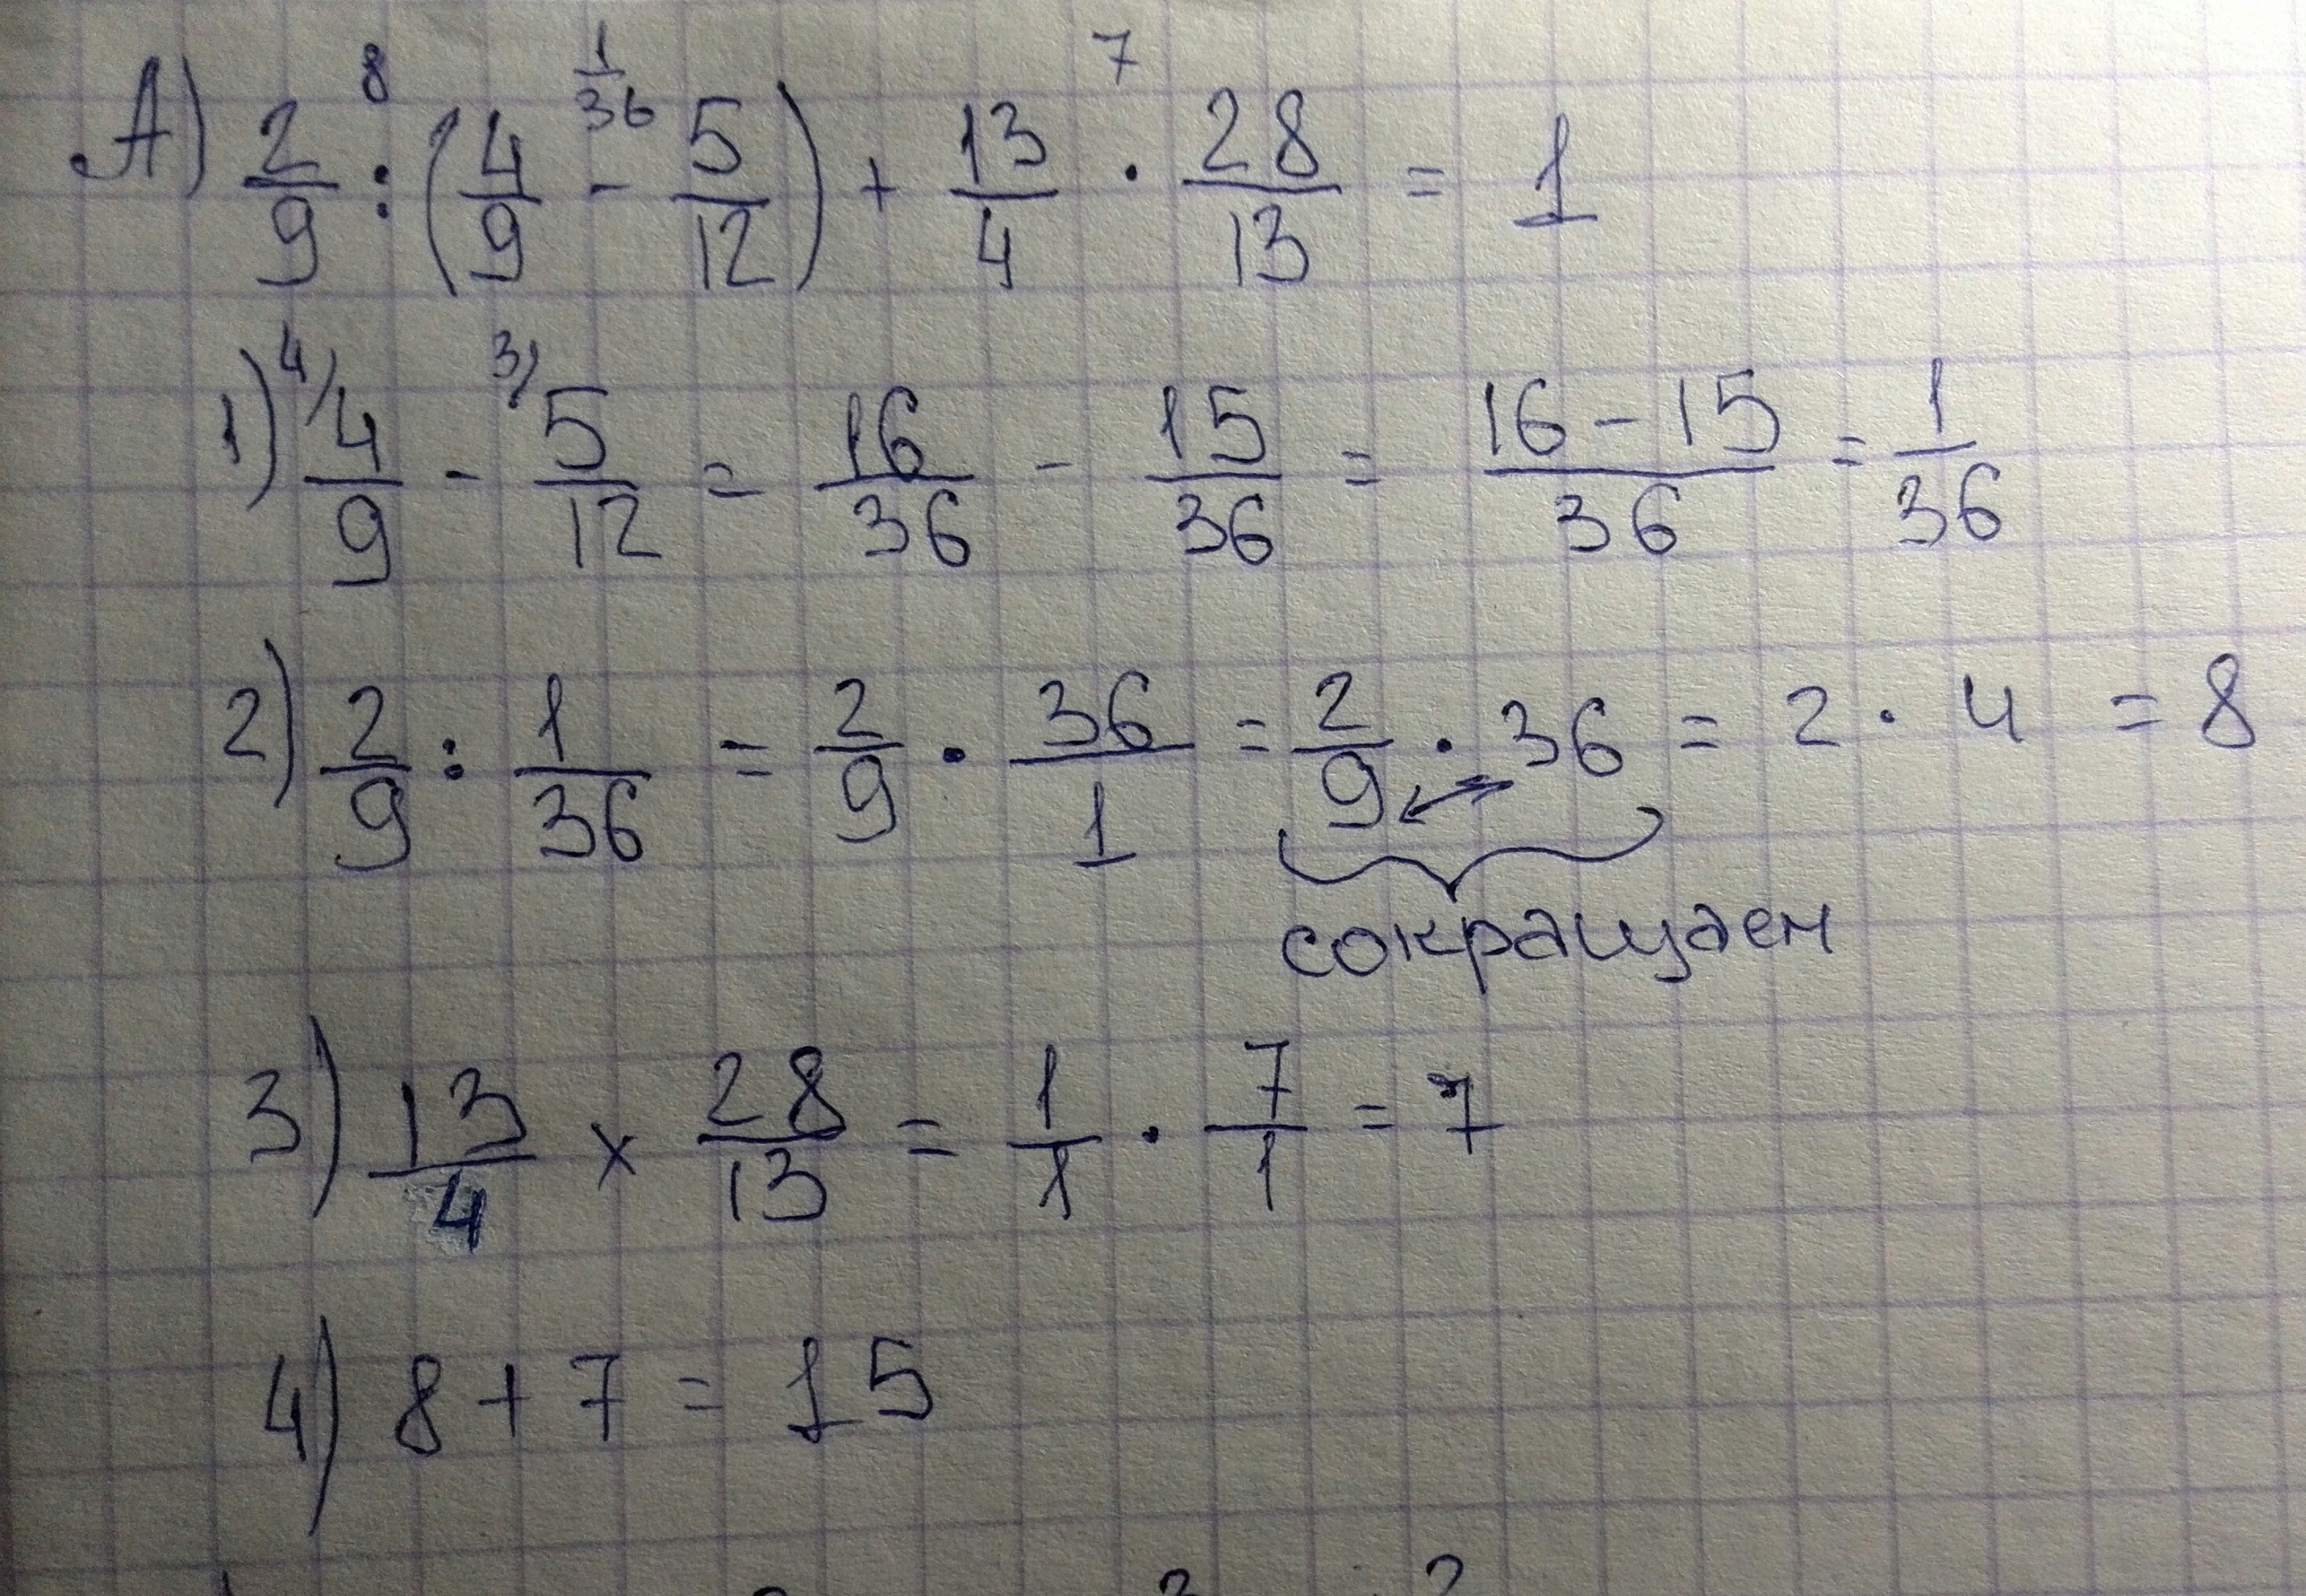 А) 2/9 : (4/9 - 5/12) + 13/4 · 28/13 = 1
8 1/36 7
1) 4/ 4/9 - 3/ 5/12 = 16/36 - 15/36 = (16 - 15)/36 = 1/36
2) 2/9 : 1/36 = 2/9 · 36/1 = 2/9 · 36 = 2 · 4 = 8
сокращаем
3) 13/4 × 28/13 = 1/1 · 7/1 = 7
4) 8 + 7 = 15